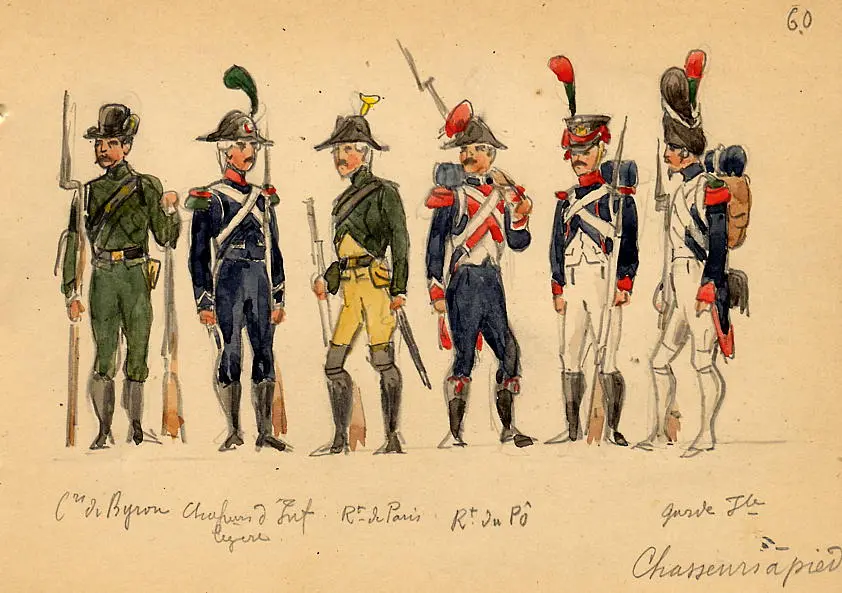 60
Crs de Byron
Chasseurs d'Inf
legere
Rt. de Paris
Rt. du Pô
garde Ile
Chasseurs à pied